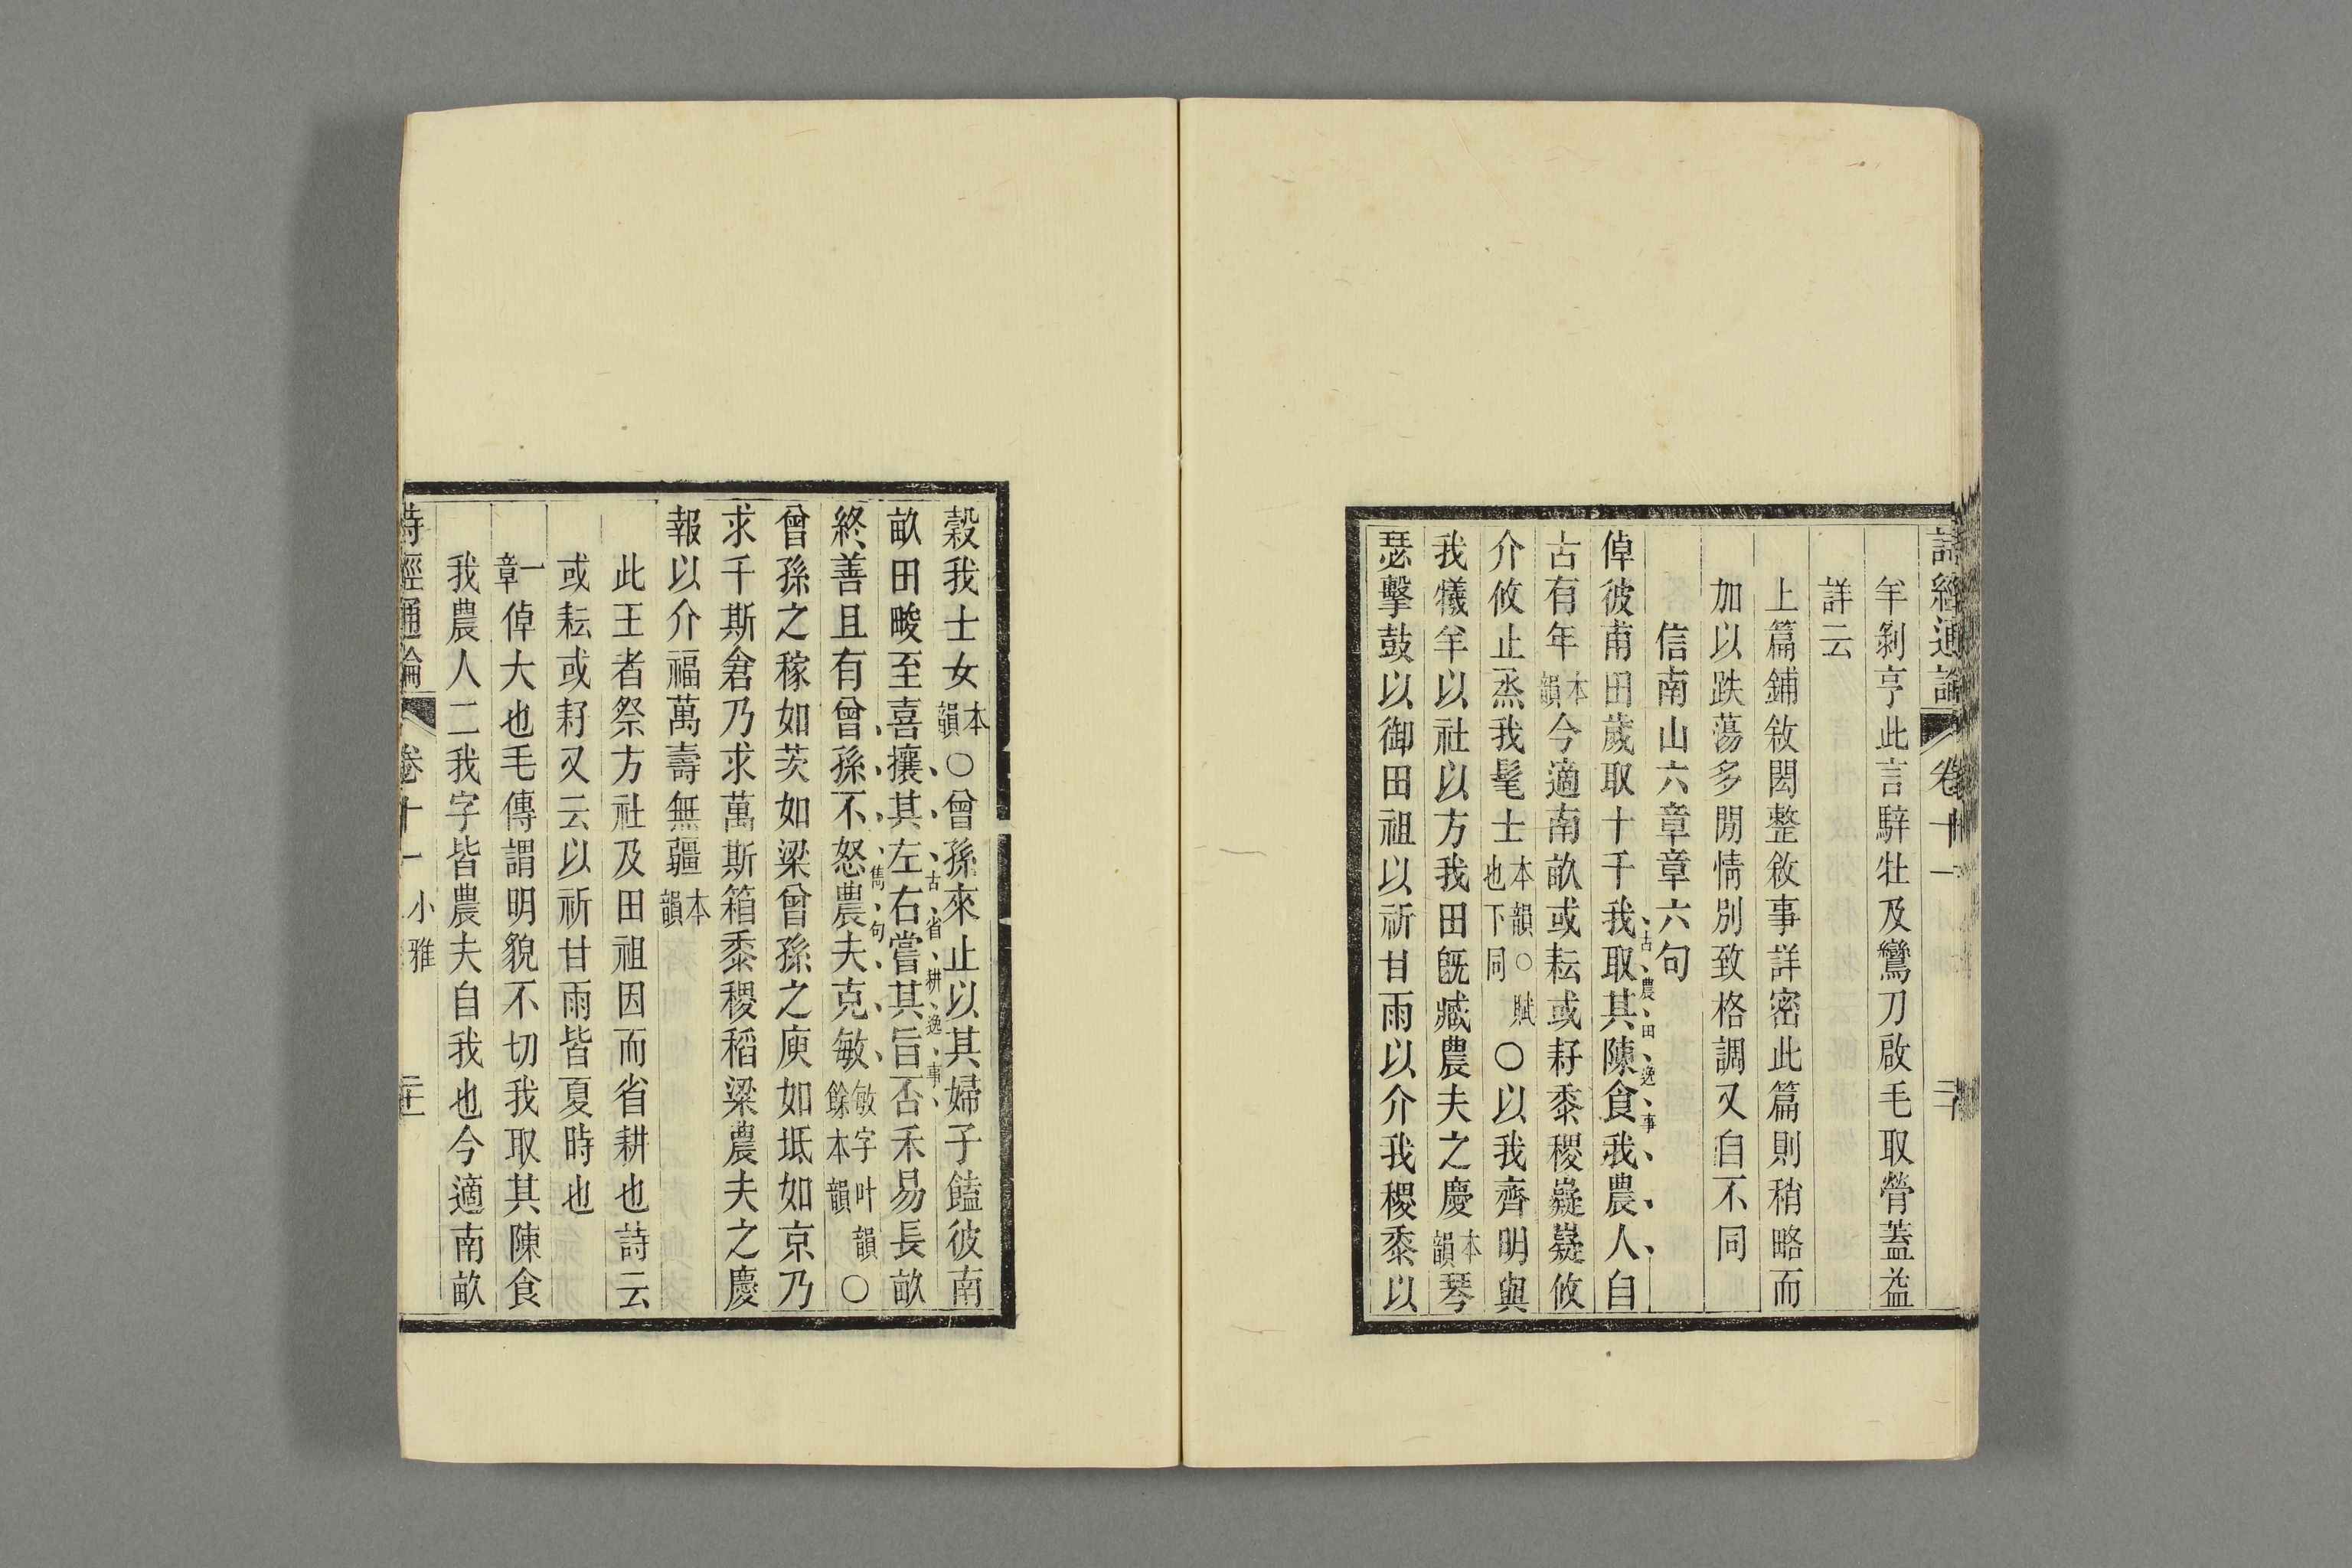 詩經通論 卷十一 二十
羊剝亨此言騂牡及鸞刀啟毛取膋蓋益
詳云
上篇鋪敘閎整敘事詳密此篇則稍略而
加以跌蕩多閒情別致格調又自不同
信南山六章章六句
倬彼甫田歲取十千我取其陳食我農人自
古、農、田、逸、事
古有年本韻今適南畝或耘或耔黍稷嶷嶷攸
介攸止烝我髦士本韻○賦也下同○以我齊明與
我犧羊以社以方我田旣臧農夫之慶本韻琴
瑟擊鼓以御田祖以祈甘雨以介我稷黍以
穀我士女本韻○曾孫來止以其婦子饁彼南
古、省、耕、逸、事
畝田畯至喜攘其左右嘗其旨否禾易長畝
雋、句
終善且有曾孫不怒農夫克敏敏字叶韻餘本韻○
曾孫之稼如茨如梁曾孫之庾如坻如京乃
求千斯倉乃求萬斯箱黍稷稻粱農夫之慶
報以介福萬壽無疆本韻
此王者祭方社及田祖因而省耕也詩云
或耘或耔又云以祈甘雨皆夏時也
一章倬大也毛傳謂明貌不切我取其陳食
我農人二我字皆農夫自我也今適南畝
詩經通論 卷十一 小雅 二十一